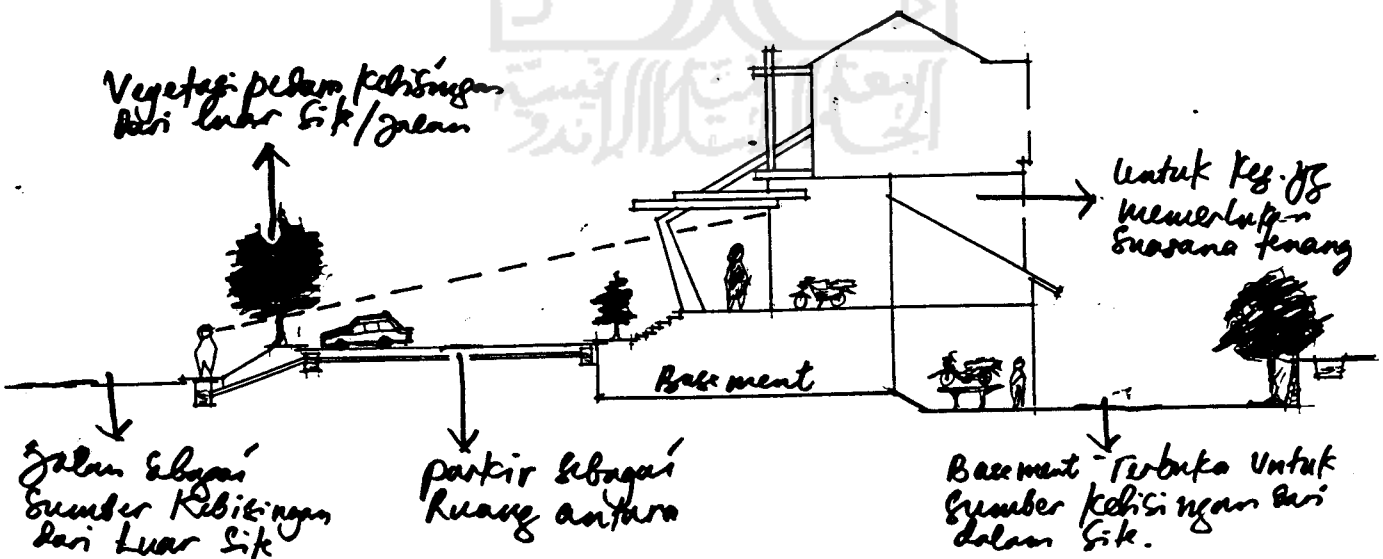 Vegetasi pedam kebisingan
dari luar site/jalan
untuk keg. yg
memerlukan
suasana tenang
Basement
Jalan sbagai
sumber Kebisingan
dari Luar Site
parkir sebagai
Ruang antara
Basement Terbuka Untuk
sumber kebisingan dari
dalam site.